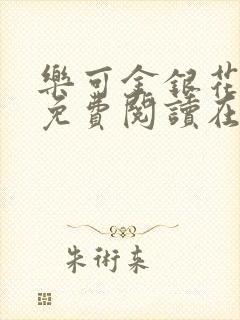 樂可金銀花
免費閱讀在
朱術來